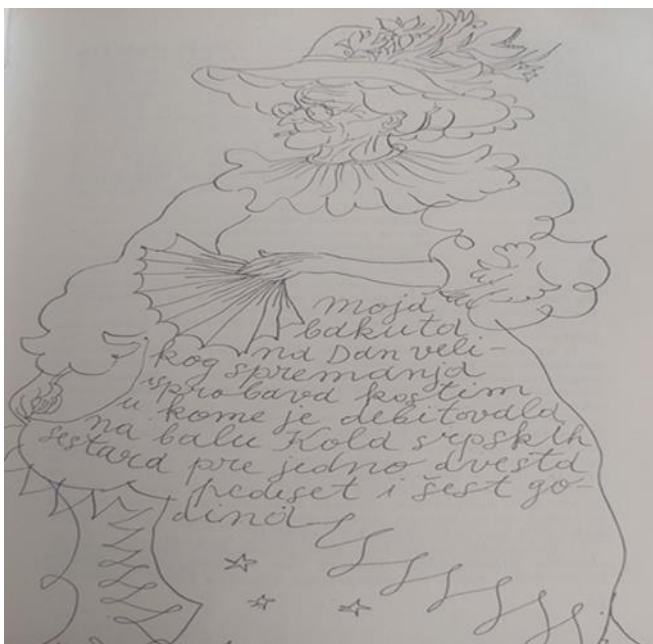 moja
bakuta
na Dan veli-
kog spremanja
isprobava kostim
u kome je debitovala
na balu Kola srpskih
sestara pre jedno dvesta
pedeset i šest go-
dina